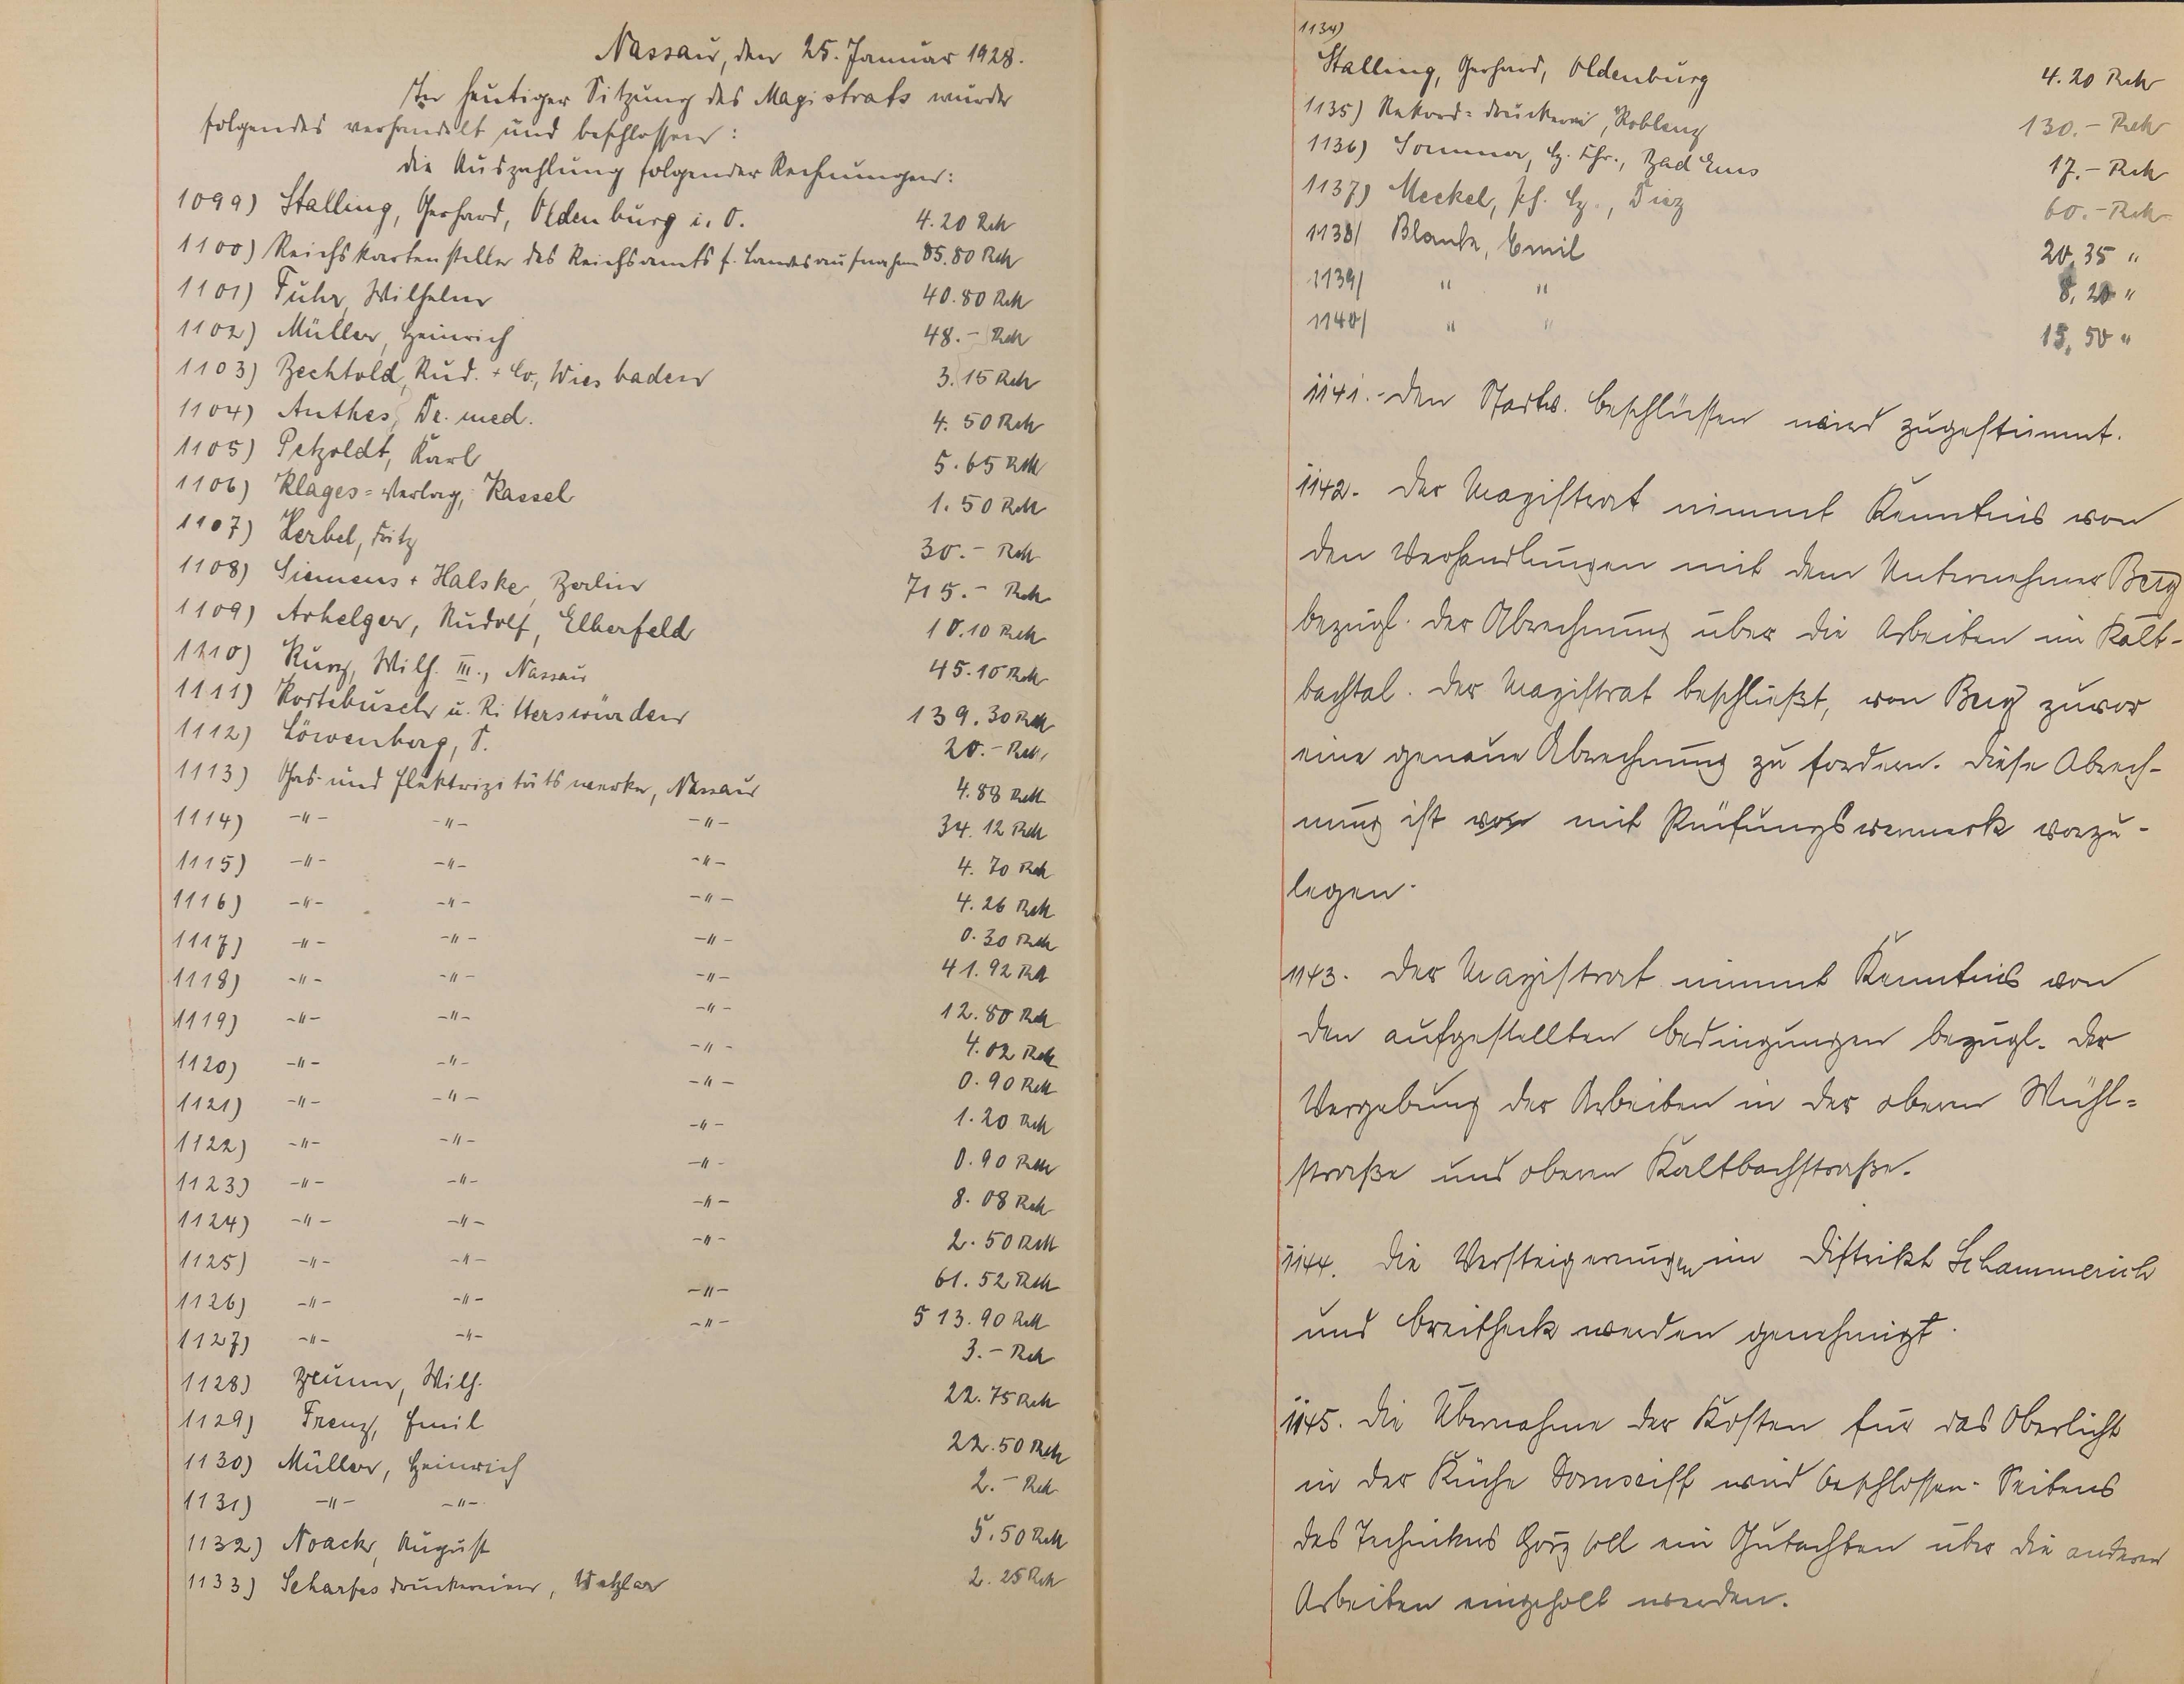 Nassau, den 25. Januar 1928.
In heutiger Sitzung des Magistrats wurde
folgendes verhandelt und beschlossen:
die Auszahlung folgender Rechnungen:
1099) Stalling, Gerhard, Oldenburg i. O. 4.20 RM
1100) Reichskartenstelle des Reichsamts f. Landesaufnahme 85.80 RM
1101) Fuhr, Wilhelm 40.80 RM
1102) Müller, Heinrich 48.- RM
1103) Bechtold, Rud. + Co, Wiesbaden 3.15 RM
1104) Anthes, Dr. med. 4.50 RM
1105) Petzoldt, Karl 5.65 RM
1106) Klages=Verlag, Kassel 1.50 RM
1107) Herbel, Fritz 30.- RM
1108) Siemens + Halske, Berlin 715.- RM
1109) Arhelger, Rudolf, Elberfeld 10.10 RM
1110) Kurz, Wilh. III., Nassau 45.10 RM
1111) Kortebusch u. Ritterswürden 139.30 RM
1112) Löwenberg, S. 20.- RM
1113) Gas- und Elektrizitätswerke, Nassau 4.88 RM
1114) -"- -"- -"- 34.12 RM
1115) -"- -"- -"- 4.70 RM
1116) -"- -"- -"- 4.26 RM
1117) -"- -"- -"- 0.30 RM
1118) -"- -"- -"- 41.92 RM
1119) -"- -"- -"- 12.80 RM
1120) -"- -"- -"- 4.02 RM
1121) -"- -"- -"- 0.90 RM
1122) -"- -"- -"- 1.20 RM
1123) -"- -"- -"- 0.90 RM
1124) -"- -"- -"- 8.08 RM
1125) -"- -"- -"- 2.50 RM
1126) -"- -"- -"- 61.52 RM
1127) -"- -"- -"- 513.90 RM
1128) Wilh. 3.- RM
1129) Frenz, Emil 22.75 RM
1130) Müller, Heinrich 22.50 RM
1131) -"- -"- 2.- RM
1132) Noack, August 5.50 RM
1133) Scharfes Druckereien, Wetzlar 2.25 RM
1134)
Stalling, Gerhard, Oldenburg 4.20 RM
1135) Rekord=Druckerei, Koblenz 130.- RM
1136) Sommer, H. Chr., Bad Ems 17.- RM
1137) Meckel, Ph. H., Diez 60.- RM
1138/ Blank, Emil 20,35 "
1139/ " " 8,20 "
1140/ " " 15,50 "
1141. Den Stadtv. Beschlüssen wird zugestimmt.
1142. Der Magistrat nimmt Kenntnis von
den Verhandlungen mit dem Unternehmer Berg
bezügl. der Abrechnung über die Arbeiten im Kalt-
bachtal. Der Magistrat beschließt, von Berg zuvor
eine genaue Abrechnung zu fordern. Diese Abrech-
nung ist vor mit Prüfungsvermerk vorzu-
legen.
1143. Der Magistrat nimmt Kenntnis von
den aufgestellten Bedingungen bezügl. der
Vergebung der Arbeiten in der oberen Mühl=
straße und oberen Kaltbachstraße.
1144. Die Versteigerungen im Distrikt Schammerich
und Breitheck werden genehmigt.
1145. Die Übernahme der Kosten für das Oberlicht
in der Küche wird beschlossen. Seitens
des Technikers Görg soll ein Gutachten über die anderen
Arbeiten eingeholt werden.